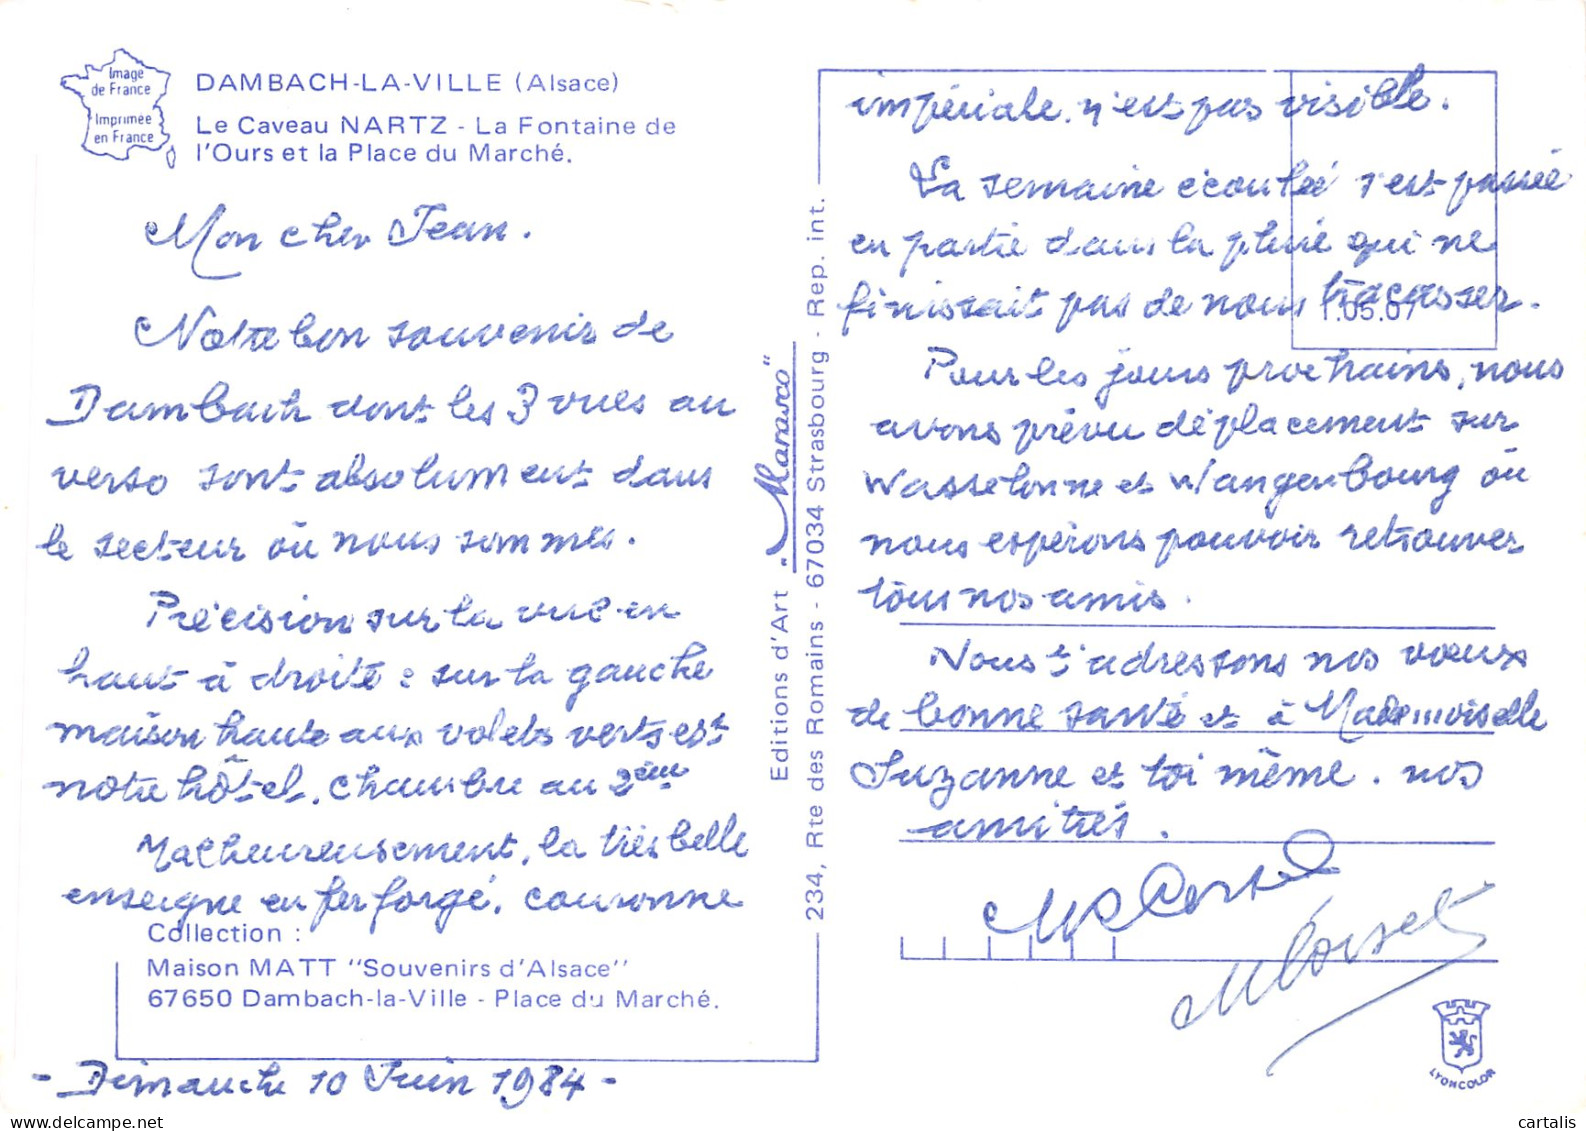 Image
de France
Imprimée
en France
DAMBACH-LA-VILLE (Alsace)
Le Caveau NARTZ - La Fontaine de
l'Ours et la Place du Marché.
Mon cher Jean.
Notre bon souvenir de
Dambach dont les 3 vues au
verso sont absolument dans
le secteur où nous sommes.
Précision sur la vue en
haut à droite : sur la gauche
maison haute aux volets verts est
notre hôtel. chambre au 2ème
Malheureusement, la très belle
enseigne en fer forgé, couronne
Collection :
Maison MATT "Souvenirs d'Alsace"
67650 Dambach-la-Ville - Place du Marché.
- Dimanche 10 Juin 1984 -
Editions d'Art "Marasco"
234, Rte des Romains - 67034 Strasbourg - Rep. int.
impériale. n'est pas visible.
La semaine écoulée s'est passée
en partie dans la pluie qui ne
finissait pas de nous tracasser.
1.05.07
Pour les jours prochains, nous
avons prévu déplacement sur
Wasselonne et Wangenbourg où
nous espérons pouvoir retrouver
tous nos amis.
Nous t'adressons nos voeux
de bonne santé et à Mademoiselle
Suzanne et toi même. nos
amitiés.
LYONCOLOR
cartalis